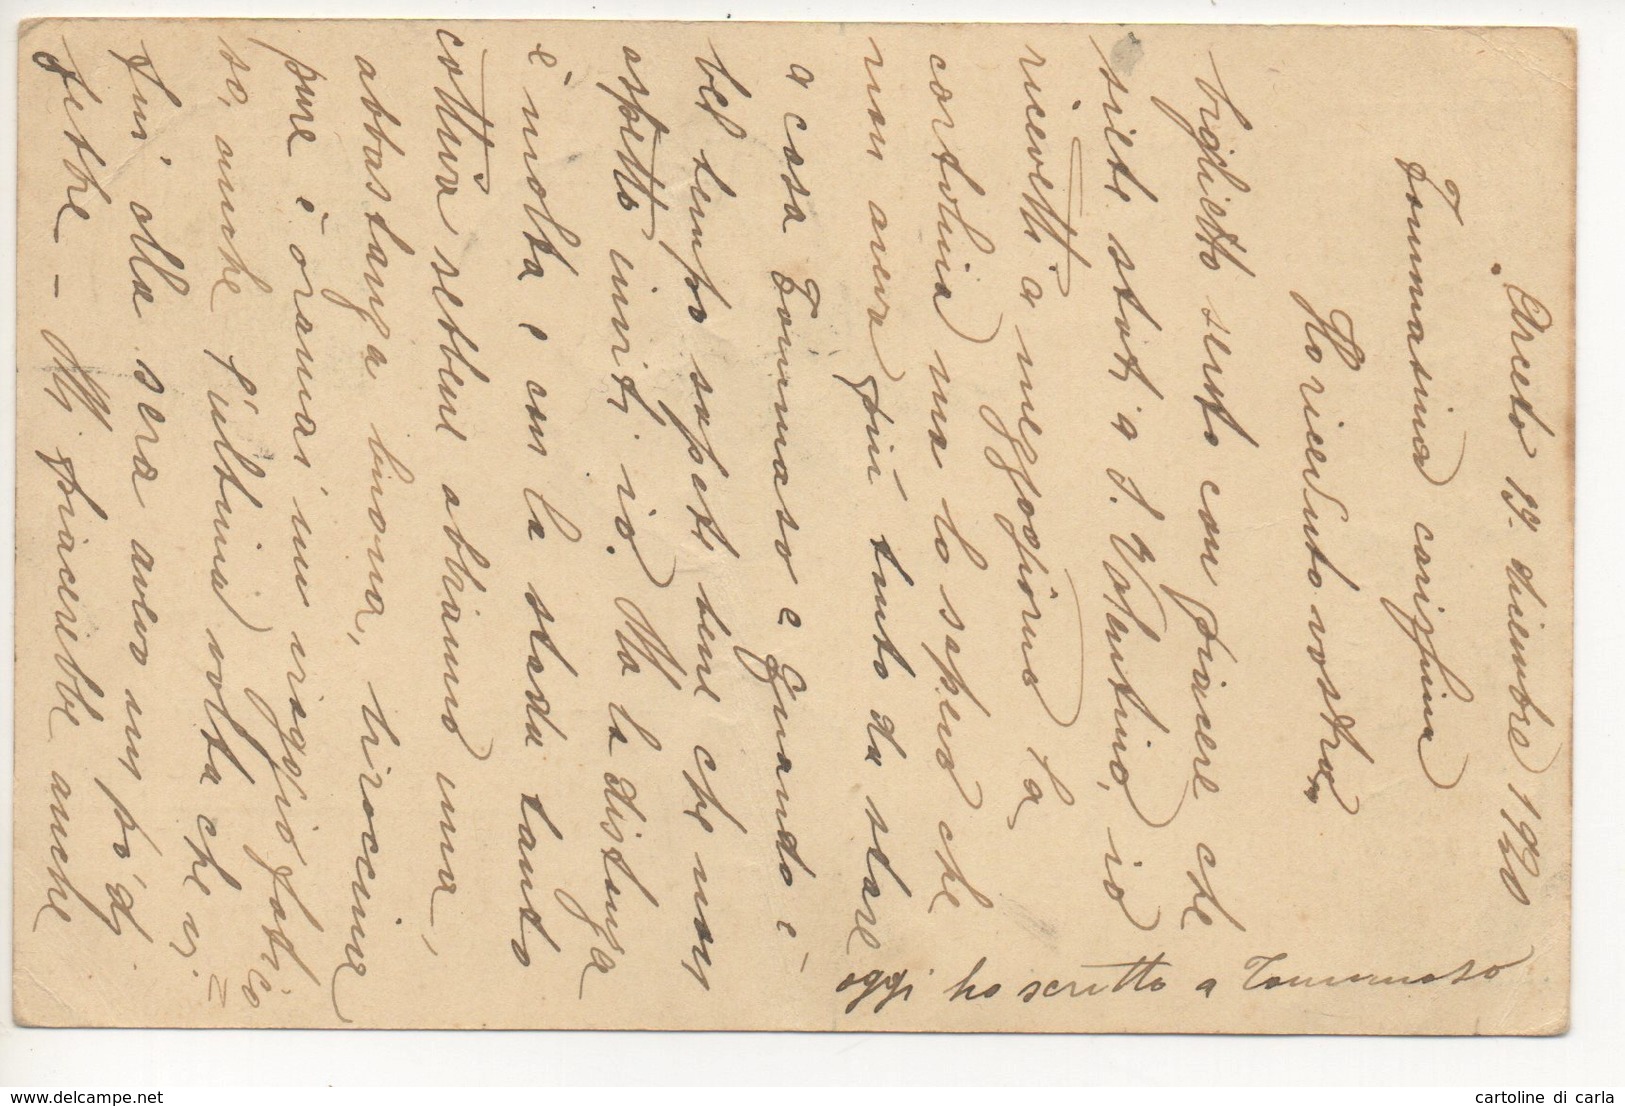 Arceto 19. dicembre 1920
Tommasina carissima
Ho ricevuto vostro
biglietto sento con piacere che
siete stati a S. Valentino, io
ricevetti a mezzogiorno la
cartolina ma lo sapevo che
non aveva più tanto da stare
a casa Tommaso e quando è
bel tempo sapete bene che non
aspetto inviti io. Ma la distanza
è molta e con la strada tanto
cattiva sebbene abbiamo una,
abbastanza buona, tirocina
pure è oramai un viaggio fatico
so, anche l'ultima volta che vi=
fui alla sera avevo un pò di
febbre - Mi piacerebbe anche
oggi ho scritto a Tommaso
cartoline di carla